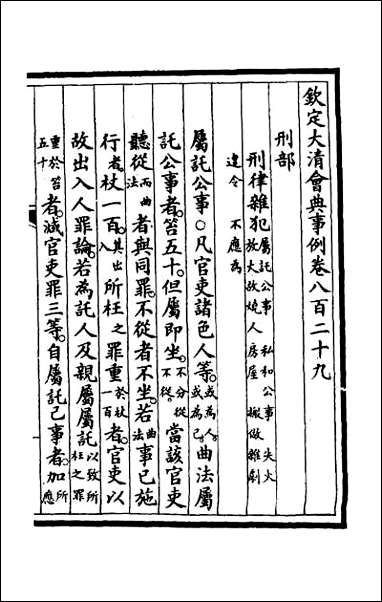 欽定大清會典事例卷八百二十九
刑部
刑律雜犯屬託公事 私和公事 失火 放火故燒人房屋 搬做雜劇
違令 不應為
屬託公事○凡官吏諸色人等。或為人。或為己。曲法屬
託公事者。笞五十。但屬即坐。不分從不從。當該官吏
聽從而曲法者。與同罪。不從者不坐。若曲法事已施
行者。杖一百。其出入所枉之罪重於杖一百者。官吏以
故出入人罪論。若為託人及親屬屬託以致所枉之罪
重於笞五十者。減官吏罪三等。自屬託己事者。加所應